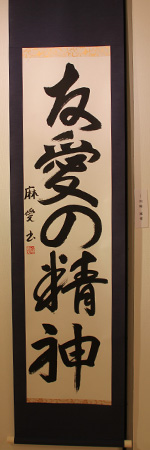 友愛の精神
麻愛書